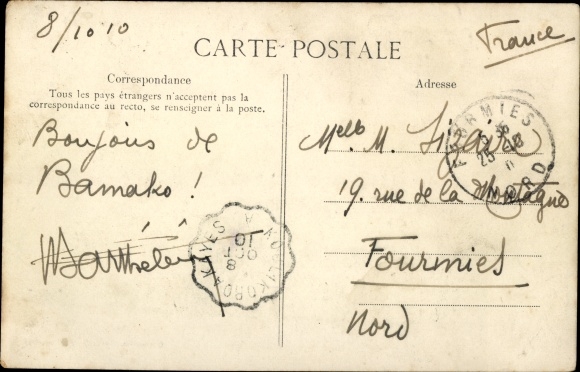 8/10 10
France
CARTE POSTALE
Correspondance
Tous les pays étrangers n'acceptent pas la
correspondance au recto, se renseigner à la poste.
Adresse
Boujour de
Bamako !
Barthélémy
Melle M.
19. rue de la Montagne
Fourmies
Nord
FOURMIES
NORD
KAYES A KOULIKORO
8
OCT
10